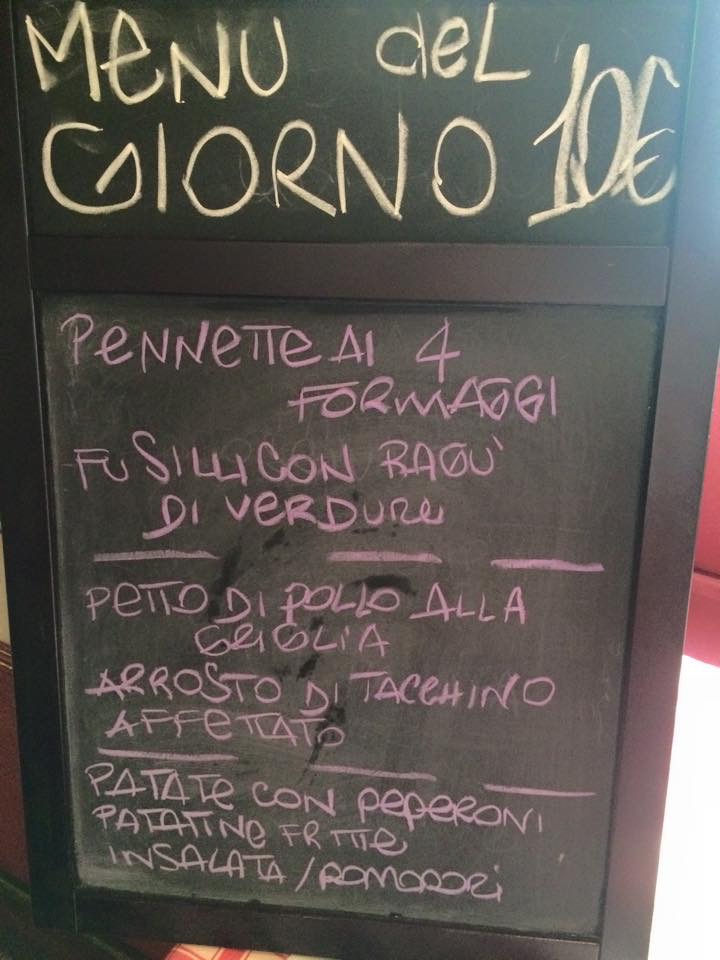 MENU del
GIORNO 10€
PENNETTE AI 4
FORMAGGI
FUSILLI CON RAGU'
DI VERDURE
PETTO DI POLLO ALLA
GRIGLIA
ARROSTO DI TACCHINO
AFFETTATO
PATATE CON PEPERONI
PATATINE FRITTE
INSALATA / POMODORI